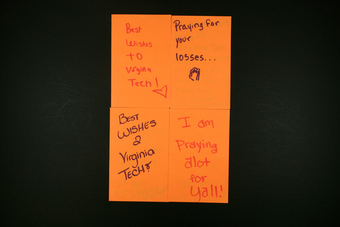 Best
Wishes
TO
Virginia
Tech!
Praying for
your
losses...
BEST
WISHES
2
Virginia
TECH!
I am
Praying
alot
for
Yall!